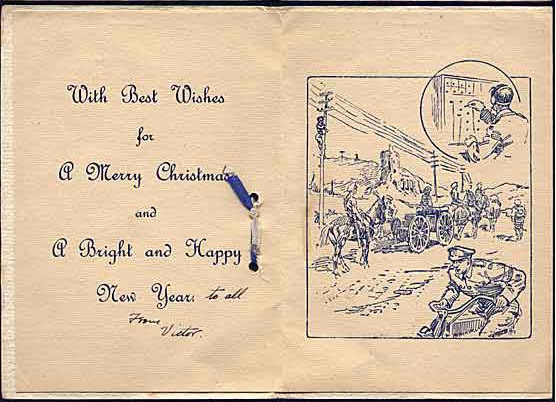 With Best Wishes
for
A Merry Christmas
and
A Bright and Happy
New Year. to all
From
Victor.